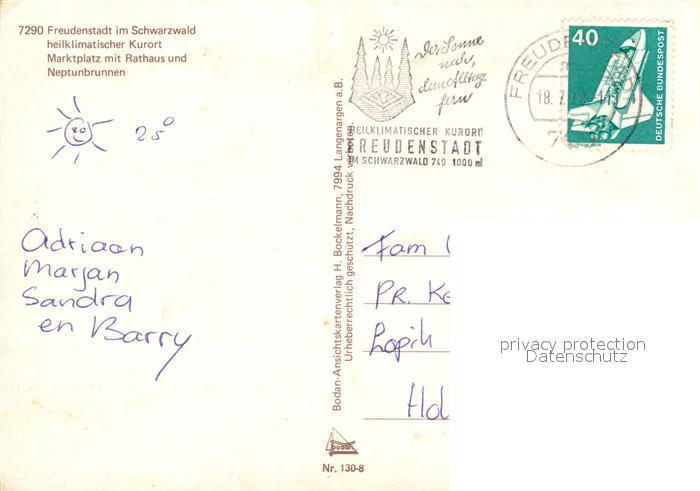 7290 Freudenstadt im Schwarzwald
heilklimatischer Kurort
Marktplatz mit Rathaus und
Neptunbrunnen
25°
Adriaan
Marjan
Sandra
en Barry
Bodan-Ansichtskartenverlag H. Bockelmann, 7994 Langenargen a.B.
Urheberrechtlich geschützt, Nachdruck verboten.
bodan
Nr. 130-8
Der Sonne
nah,
dem Alltag
fern
HEILKLIMATISCHER KURORT
FREUDENSTADT
IM SCHWARZWALD 740 1000 m
FREUDE
18.7.
7
40
DEUTSCHE BUNDESPOST
Fam
PR. Ke
Lopik
Hol
privacy protection
Datenschutz